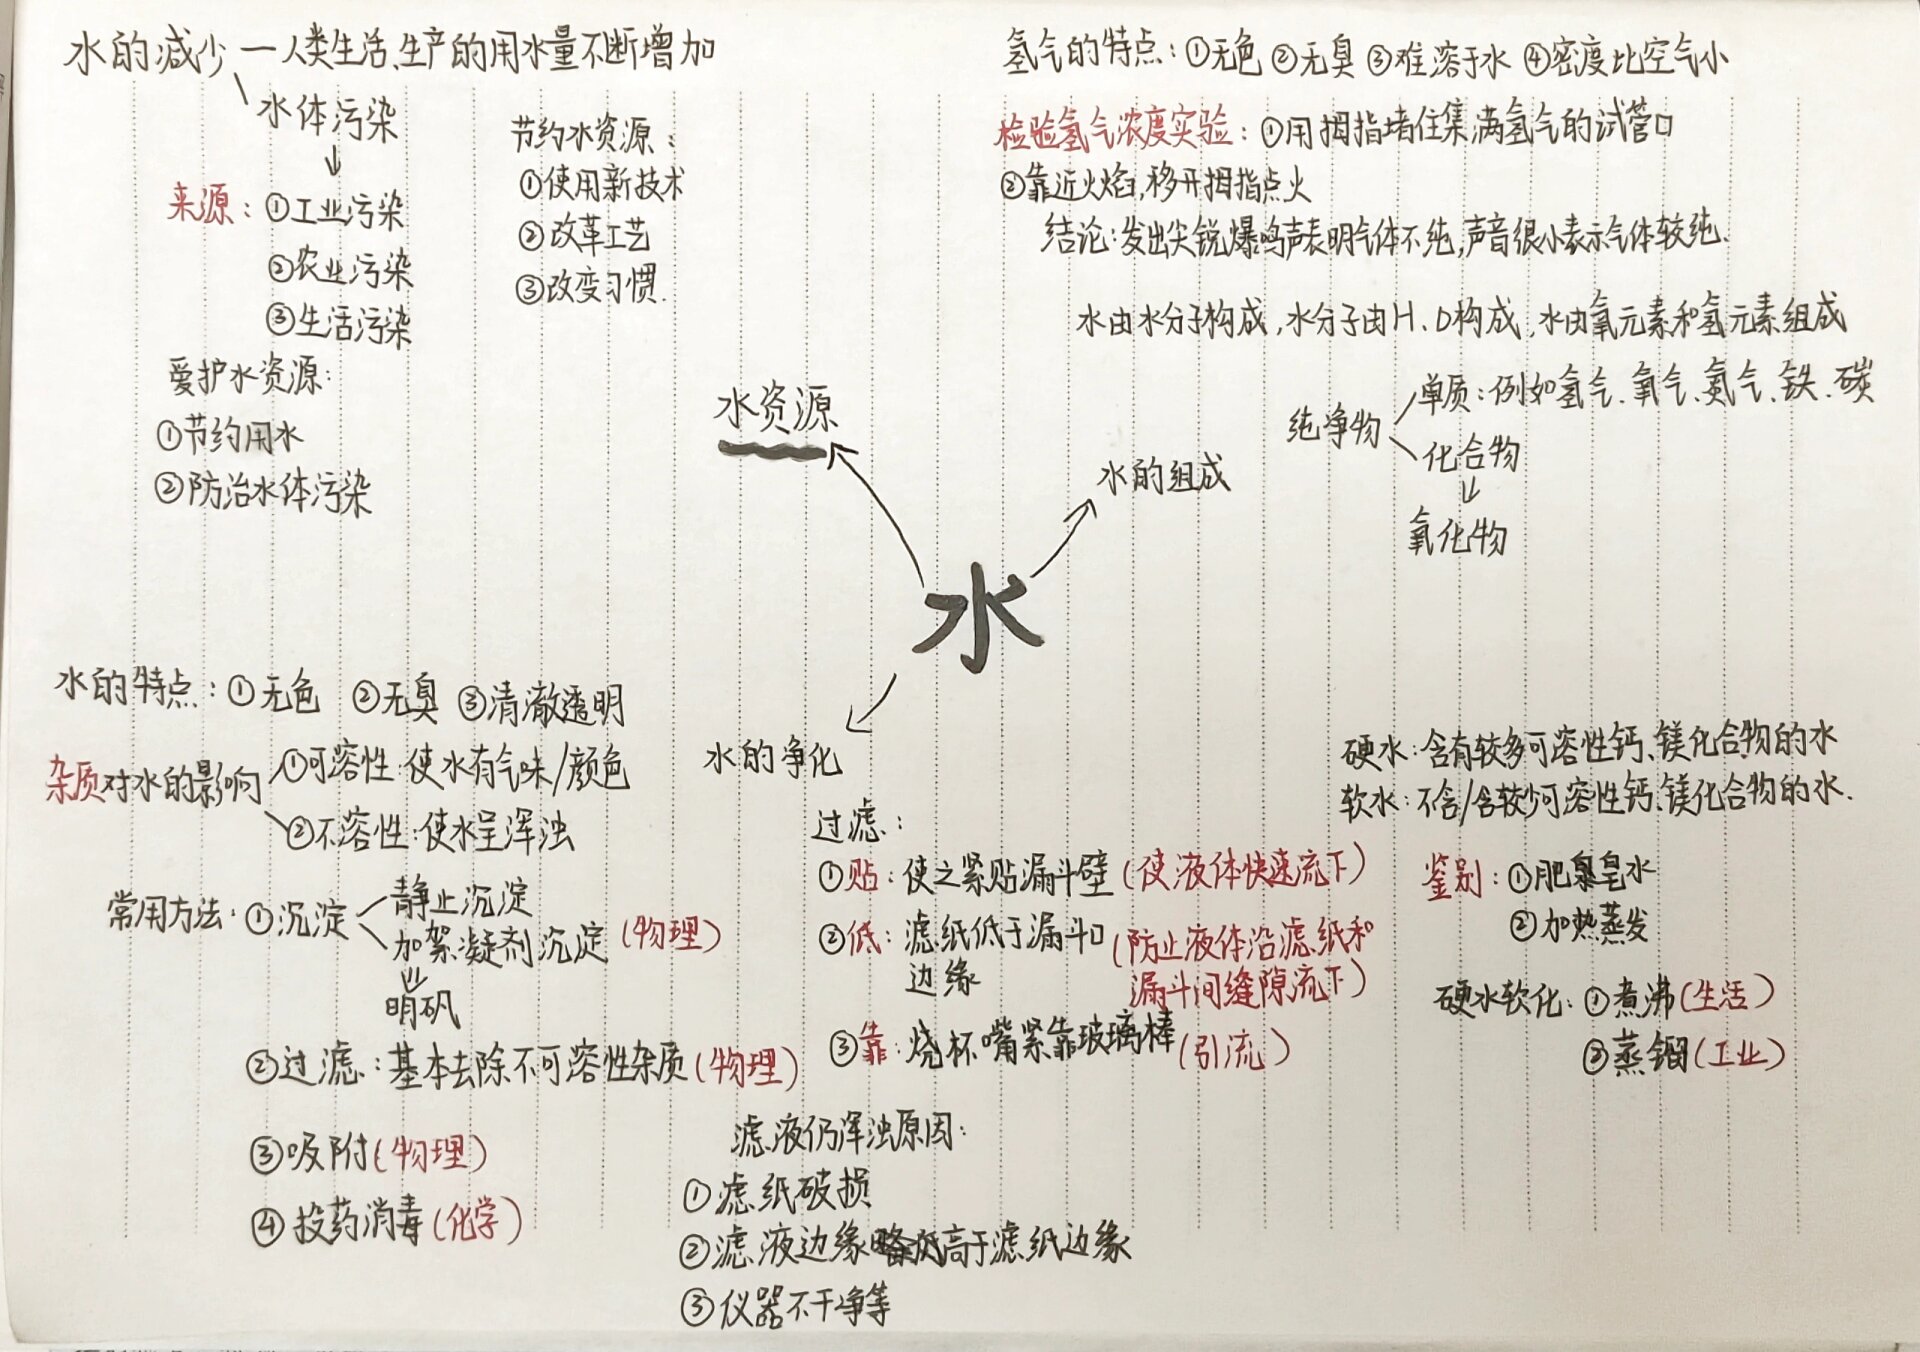 水的减少—人类生活、生产的用水量不断增加
水体污染
↓
来源：①工业污染
②农业污染
③生活污染
节约水资源：
①使用新技术
②改革工艺
③改变习惯.
爱护水资源：
①节约用水
②防治水体污染
水资源
氢气的特点：①无色 ②无臭 ③难溶于水 ④密度比空气小
检验氢气浓度实验：①用拇指堵住集满氢气的试管口
②靠近火焰，移开拇指点火
结论：发出尖锐爆鸣声表明气体不纯，声音很小表示气体较纯.
水由水分子构成，水分子由H、O构成，水由氧元素和氢元素组成
纯净物
单质：例如氢气、氧气、氮气、铁、碳
化合物
↓
氧化物
水的组成
水
水的净化
水的特点：①无色 ②无臭 ③清澈透明
杂质对水的影响
①可溶性：使水有气味/颜色
②不溶性：使水呈浑浊
常用方法：①沉淀
静止沉淀
加絮凝剂沉淀（物理）
↓
明矾
②过滤：基本去除不可溶性杂质（物理）
③吸附（物理）
④投药消毒（化学）
过滤：
①贴：使之紧贴漏斗壁（使液体快速流下）
②低：滤纸低于漏斗口
边缘
（防止液体沿滤纸和
漏斗间缝隙流下）
③靠：烧杯嘴紧靠玻璃棒（引流）
滤液仍浑浊原因：
①滤纸破损
②滤液边缘高于滤纸边缘
③仪器不干净等
硬水：含有较多可溶性钙、镁化合物的水
软水：不含/含较少可溶性钙、镁化合物的水.
鉴别：①肥皂水
②加热蒸发
硬水软化：①煮沸（生活）
②蒸馏（工业）